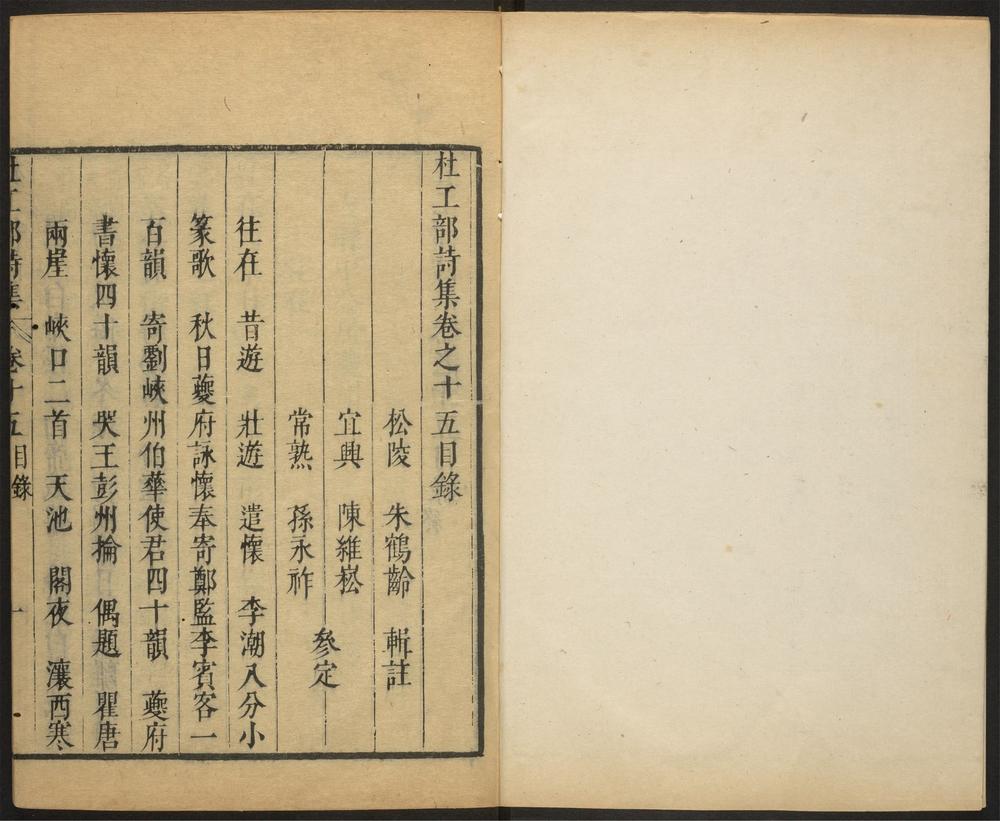 杜工部詩集卷之十五目錄
松陵 朱鶴齡 輯註
宜興 陳維崧
參定
常熟 孫永祚
往在 昔遊 壯遊 遣懷 李潮八分小
篆歌 秋日夔府詠懷奉寄鄭監李賓客一
百韻 寄劉峽州伯華使君四十韻 夔府
書懷四十韻 哭王彭州掄 偶題 瞿唐
兩崖 峽口二首 天池 閣夜 瀼西寒
杜工部詩集 卷十五目錄 一